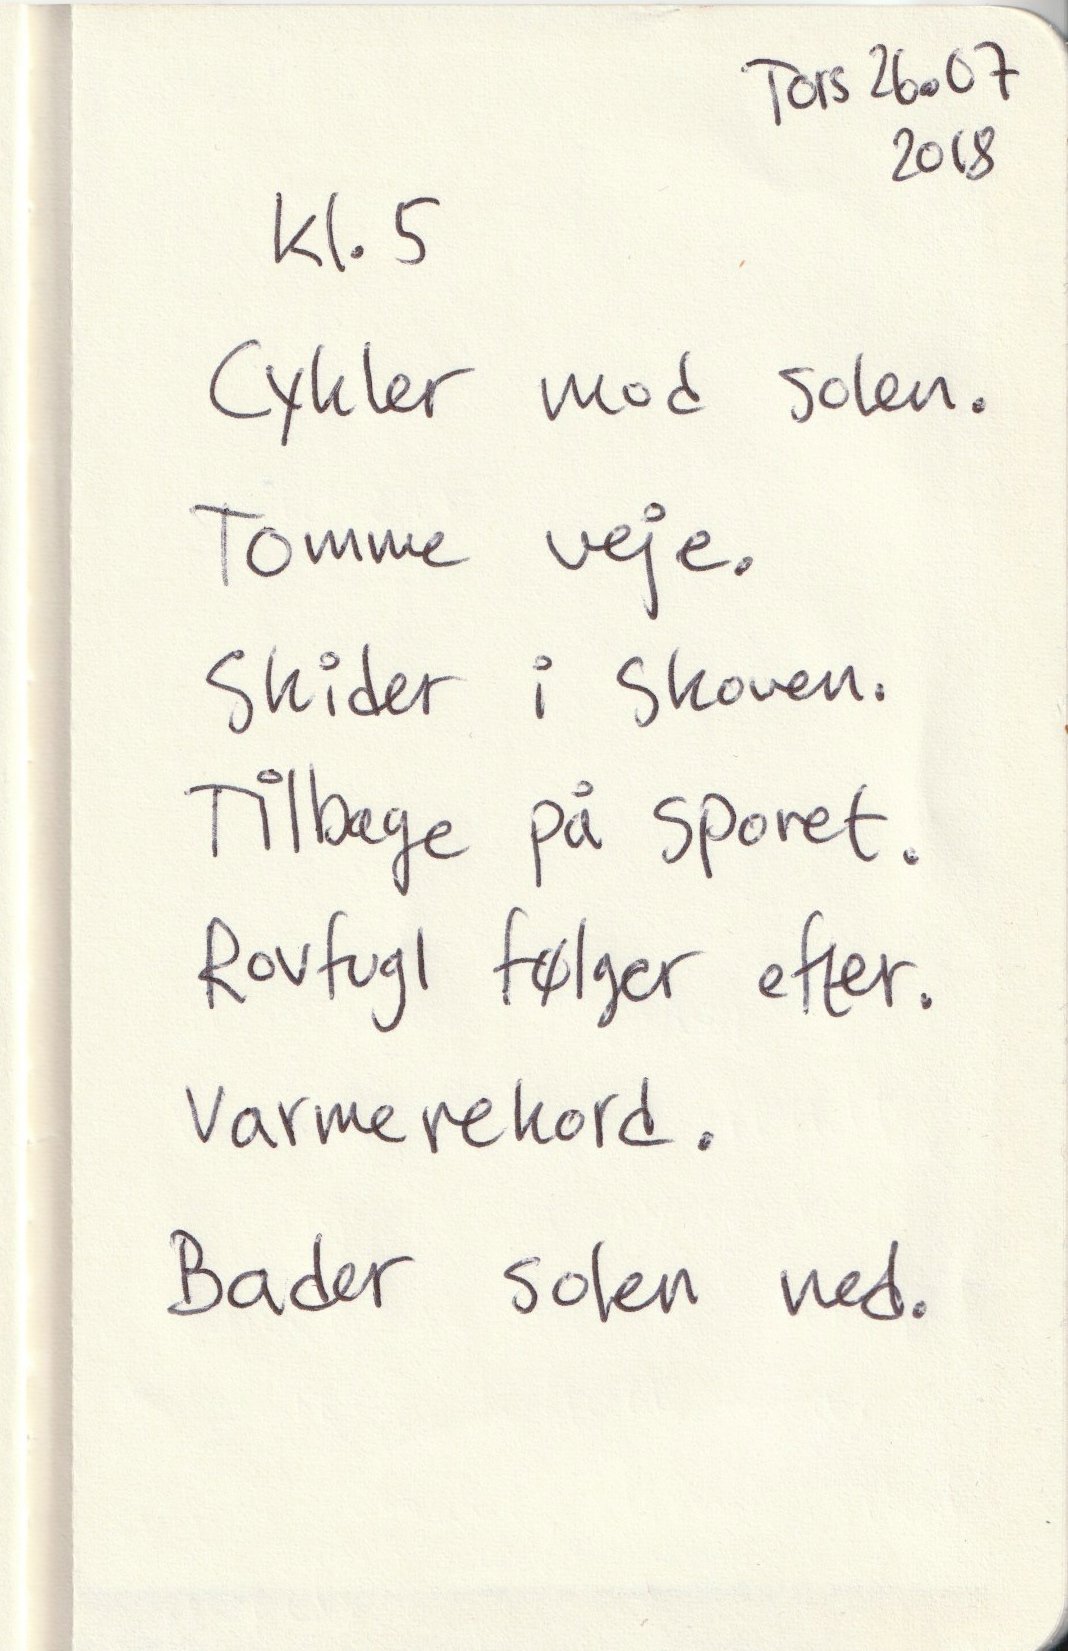 Tors 26.07
2018
kl. 5
Cykler mod solen.
Tomme veje.
Skider i skoven.
Tilbage på sporet.
Rovfugl følger efter.
Varmerekord.
Bader solen ned.